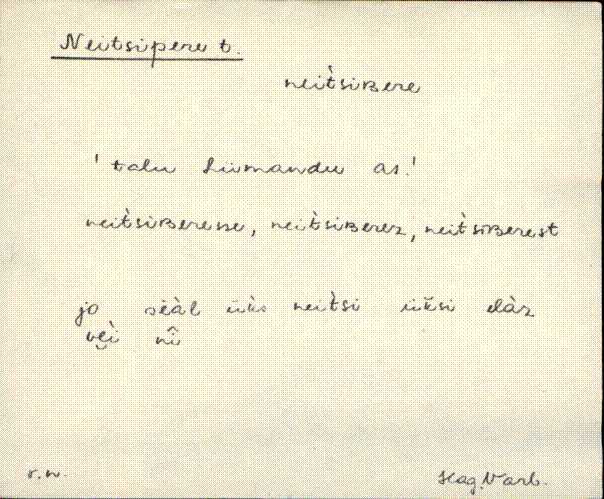 Neitsipere t.
neit̀siʙere
'talu Liimandu as.'
neit̀siʙeresse, neit̀siʙerez, neit̀siʙerest
jo sèàl ük̀s neit̀si üksi elàz
vèì nî
r.w. Hag. Varb.